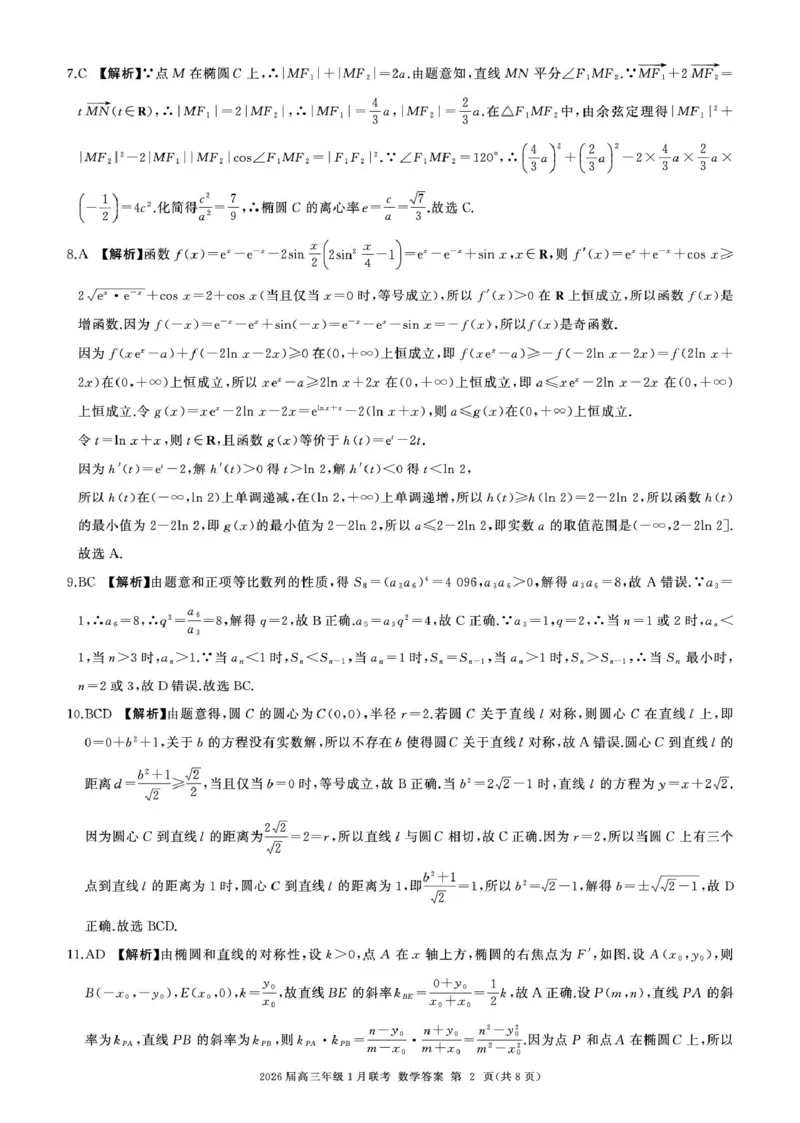 7.C 【解析】∵点 M 在椭圆 C 上,∴|MF₁|+|MF₂|=2a.由题意知,直线 MN 平分∠F₁MF₂.∵$\overrightarrow{MF_1}$+2$\overrightarrow{MF_2}$=
t$\overrightarrow{MN}$(t∈R),∴|MF₁|=2|MF₂|,∴|MF₁|=$\frac{4}{3}$a,|MF₂|=$\frac{2}{3}$a.在△F₁MF₂中,由余弦定理得|MF₁|²+
|MF₂|²-2|MF₁||MF₂|cos∠F₁MF₂=|F₁F₂|².∵∠F₁MF₂=120°,∴$\left(\frac{4}{3}a\right)^2+\left(\frac{2}{3}a\right)^2-2×\frac{4}{3}a×\frac{2}{3}a×$
$\left(-\frac{1}{2}\right)$=4c².化简得$\frac{c^2}{a^2}=\frac{7}{9}$,∴椭圆 C 的离心率e=$\frac{c}{a}=\frac{\sqrt{7}}{3}$.故选 C.
8.A 【解析】函数 f(x)=eˣ-e⁻ˣ-2sin $\frac{x}{2}\left(2\sin^2\frac{x}{4}-1\right)$=eˣ-e⁻ˣ+sin x,x∈R,则 f′(x)=eˣ+e⁻ˣ+cos x≥
2$\sqrt{e^x·e^{-x}}$+cos x=2+cos x(当且仅当 x=0 时,等号成立),所以 f′(x)>0 在 R 上恒成立,所以函数 f(x)是
增函数.因为 f(-x)=e⁻ˣ-eˣ+sin(-x)=e⁻ˣ-eˣ-sin x=-f(x),所以f(x)是奇函数.
因为 f(xeˣ-a)+f(-2ln x-2x)≥0在(0,+∞)上恒成立,即 f(xeˣ-a)≥-f(-2ln x-2x)=f(2ln x+
2x)在(0,+∞)上恒成立,所以 xeˣ-a≥2ln x+2x 在(0,+∞)上恒成立,即 a≤xeˣ-2ln x-2x 在(0,+∞)
上恒成立.令 g(x)=xeˣ-2ln x-2x=$e^{\ln x+x}$-2(ln x+x),则 a≤g(x)在(0,+∞)上恒成立.
令 t=ln x+x,则 t∈R,且函数 g(x)等价于 h(t)=eᵗ-2t.
因为 h′(t)=eᵗ-2,解 h′(t)>0 得 t>ln 2,解 h′(t)<0 得 t<ln 2,
所以 h(t)在(-∞,ln 2)上单调递减,在(ln 2,+∞)上单调递增,所以 h(t)≥h(ln 2)=2-2ln 2,所以函数 h(t)
的最小值为 2-2ln 2,即 g(x)的最小值为 2-2ln 2,所以 a≤2-2ln 2,即实数 a 的取值范围是(-∞,2-2ln 2].
故选 A.
9.BC 【解析】由题意和正项等比数列的性质,得 S₈=(a₃a₆)⁴=4 096,a₃a₆>0,解得 a₃a₆=8,故 A 错误.∵a₃=
1,∴a₆=8,∴q³=$\frac{a_6}{a_3}$=8,解得 q=2,故 B 正确.a₅=a₃q²=4,故 C 正确.∵a₃=1,q=2,∴当 n=1 或 2 时,aₙ<
1,当 n>3 时,aₙ>1.∵当 aₙ<1 时,Sₙ<Sₙ₋₁,当 aₙ=1 时,Sₙ=Sₙ₋₁,当 aₙ>1 时,Sₙ>Sₙ₋₁,∴当 Sₙ 最小时,
n=2 或 3,故 D 错误.故选 BC.
10.BCD 【解析】由题意得,圆 C 的圆心为 C(0,0),半径 r=2.若圆 C 关于直线 l 对称,则圆心 C 在直线 l 上,即
0=0+b²+1,关于 b 的方程没有实数解,所以不存在 b 使得圆 C 关于直线 l 对称,故 A 错误.圆心 C 到直线 l 的
距离 d=$\frac{b^2+1}{\sqrt{2}}≥\frac{\sqrt{2}}{2}$,当且仅当 b=0 时,等号成立,故 B 正确.当 b²=2$\sqrt{2}$-1 时,直线 l 的方程为 y=x+2$\sqrt{2}$.
因为圆心 C 到直线 l 的距离为$\frac{2\sqrt{2}}{\sqrt{2}}$=2=r,所以直线 l 与圆 C 相切,故 C 正确.因为 r=2,所以当圆 C 上有三个
点到直线 l 的距离为 1 时,圆心 C 到直线 l 的距离为 1,即$\frac{b^2+1}{\sqrt{2}}$=1,所以 b²=$\sqrt{2}$-1,解得 b=±$\sqrt{\sqrt{2}-1}$,故 D
正确.故选 BCD.
11.AD 【解析】由椭圆和直线的对称性,设 k>0,点 A 在 x 轴上方,椭圆的右焦点为 F′,如图.设 A(x₀,y₀),则
B(-x₀,-y₀),E(x₀,0),k=$\frac{y_0}{x_0}$,故直线 BE 的斜率 $k_{BE}=\frac{0+y_0}{x_0+x_0}=\frac{1}{2}k$,故 A 正确.设 P(m,n),直线 PA 的斜
率为 $k_{PA}$,直线 PB 的斜率为 $k_{PB}$,则 $k_{PA}·k_{PB}=\frac{n-y_0}{m-x_0}·\frac{n+y_0}{m+x_0}=\frac{n^2-y_0^2}{m^2-x_0^2}$.因为点 P 和点 A 在椭圆 C 上,所以
2026届高三年级1月联考 数学答案 第 2 页(共8页)